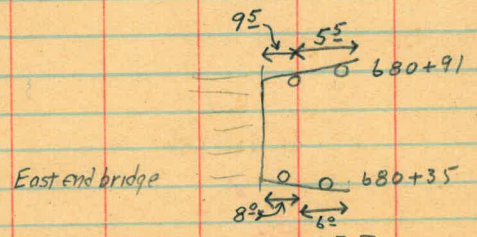 9⁵ 5⁵
680+91
East end bridge 680+35
8⁰ 6⁰